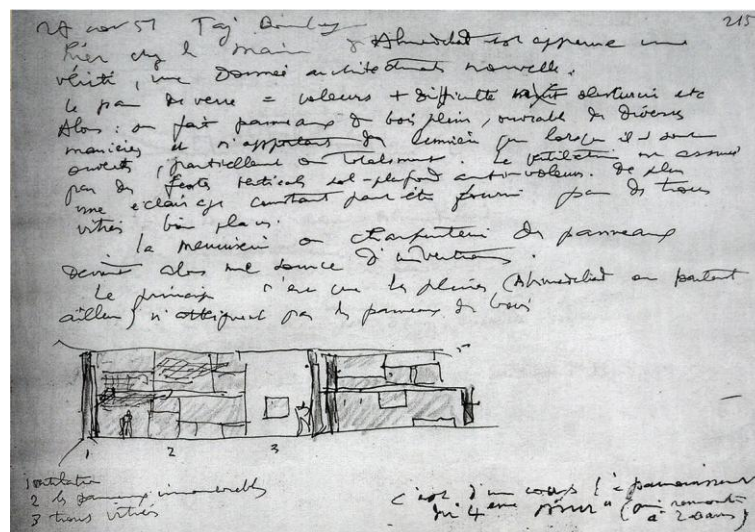 27 nov 51 Taj Bombay 215
hier chez le Maire d'Ahmedabad est apparue une
vérité, une donnée architecturale nouvelle.
Le pan de verre = voleurs + difficulté obstruction etc
Alors : on fait panneaux de bois plein, ouvrable de diverses
manières et n'apportant de lumière que lorsqu'ils sont
ouverts, partiellement ou totalement. La ventilation est assurée
par des fentes verticales sol-plafond anti-voleurs. De plus
une éclairage constant peut être fourni par des trous
vitrés bien placés.
la menuiserie ou charpenterie de panneaux
devient alors une source d'invention.
Le principe c'est que les pluies (Ahmedabad ou partout
ailleurs) n'attaquent pas les panneaux de bois
1 2 3
1 ventilation
2 les panneaux innombrables
3 trous vitrés
c'est d'un coup l'épanouissement
du "4ème mur" (qui remonte
à 2 ans)